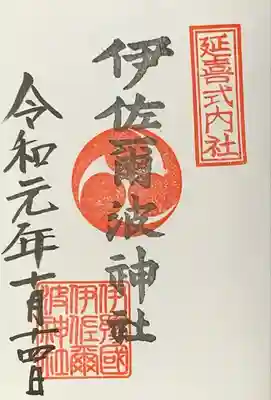 延喜式内社
伊佐爾波神社
伊豫國
伊佐爾
波神社
令和元年十月十四日